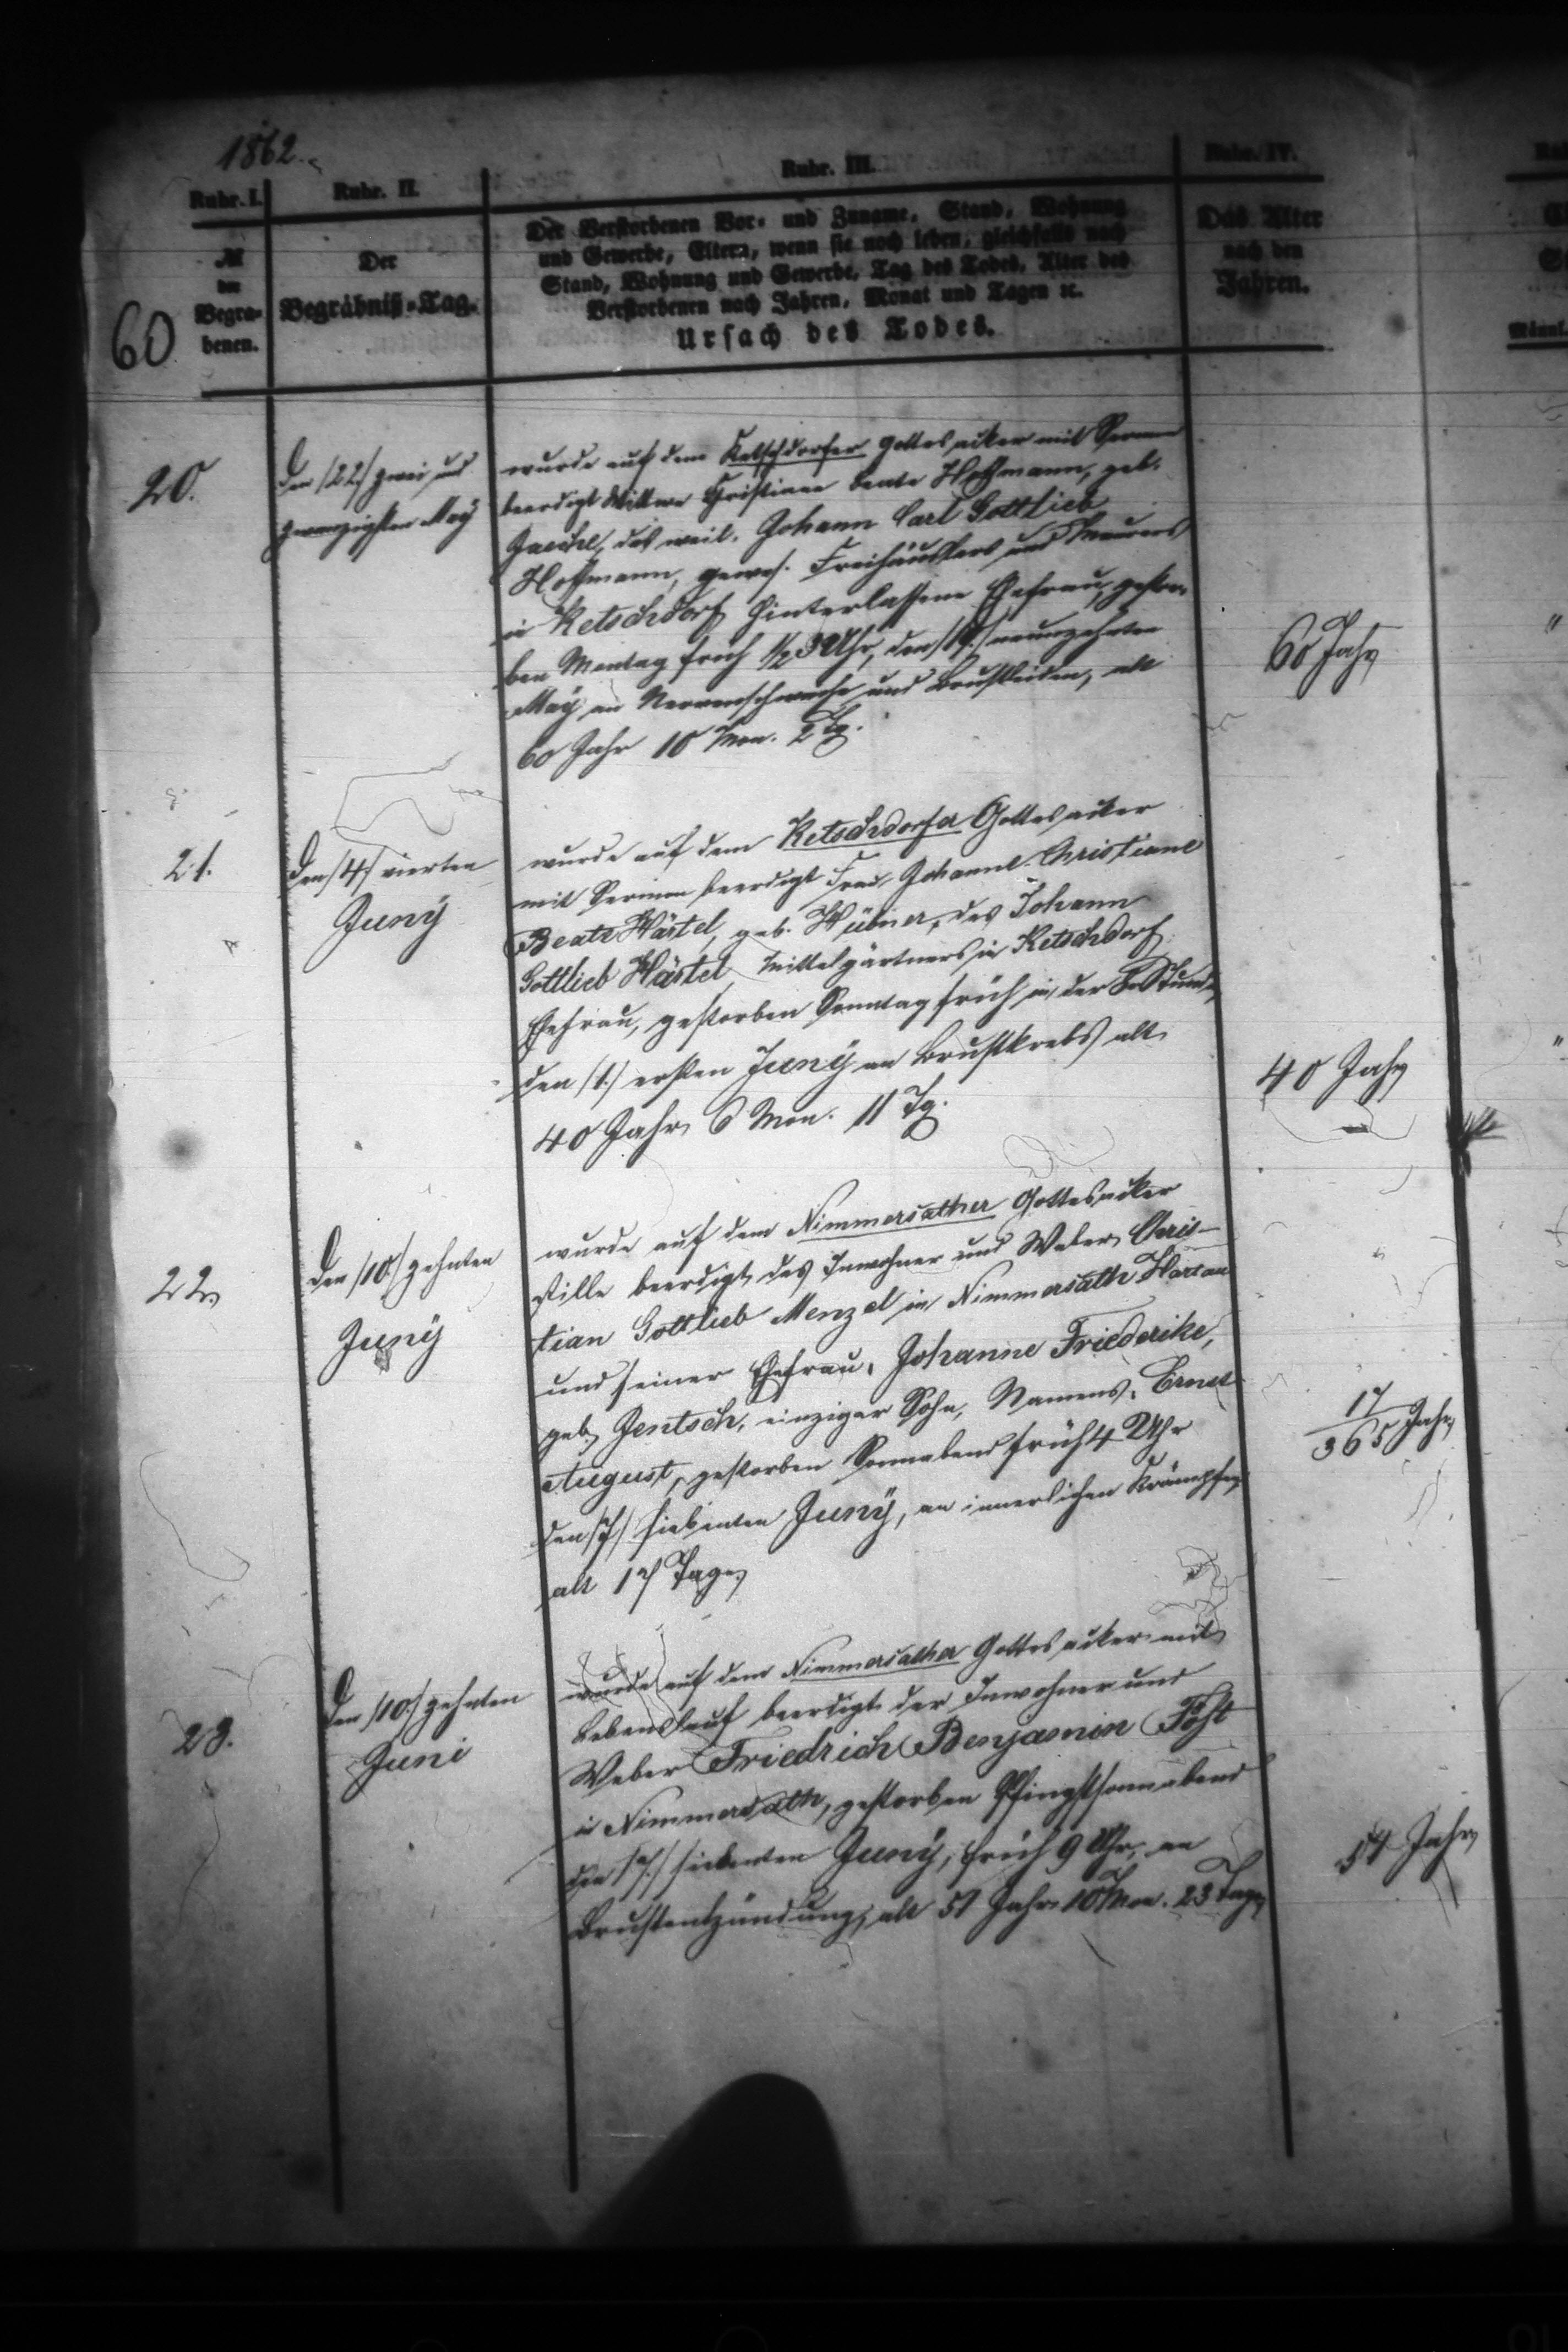 1862.
Rubr. I.
Rubr. II.
Rubr. III.
Rubr. IV.
№
der
Begra-
benen.
Der
Begräbniß-Tag.
Der Verstorbenen Vor- und Zuname, Stand, Wohnung
und Gewerbe, Eltern, wenn sie noch leben, gleichfalls nach
Stand, Wohnung und Gewerbe, Tag des Todes, Alter des
Verstorbenen nach Jahren, Monat und Tagen ꝛc.
Ursach des Todes.
Das Alter
nach den
Jahren.
Männl.
60
20.
Den /22/ zwei und
zwanzigsten May
wurde auf dem Ketschdorfer Gottesacker mit Sermon
beerdigt Wittwe Christiane Beate Hoffmann, geb.
des weil. Johann Carl Gottlieb
Hoffmann, gewes. Freihäuslers und Maurers
in Ketschdorf hinterlassene Ehefrau, gestor-
ben Montag früh ½3 Uhr, den /19/ neunzehnten
May an Nervenschwäche und Brustleiden, alt
60 Jahr 10 Mon. 2 Tg.
60 Jahr
21.
Den /4/ vierten
Juny
wurde auf dem Ketschdorfer Gottesacker
mit Sermon beerdigt Frau Johanne Christiane
Beate Härtel, geb. Hübner, des Johann
Gottlieb Härtel, Mittelgärtners in Ketschdorf
Ehefrau, gestorben Sonntag früh in der Stunde
den /1./ ersten Juny an Brustkrebs alt
40 Jahr 6 Mon. 11 Tg.
40 Jahr
22.
Den /10/ zehnten
Juny
wurde auf dem Nimmersather Gottesacker
stille beerdigt des Inwohner und Weber Chris-
tian Gottlieb Menzel in Nimmersath Hartau
und seiner Ehefrau, Johanne Friederike,
geb. Jentsch, einziger Sohn, Namens, Ernst
August, gestorben Sonnabend früh 4 Uhr
den /7/ siebenten Juny, an innerlichen Krämpfen
alt 17 Tage.
17
365 Jahr
23.
Den /10/ zehnten
Juni
wurde auf dem Nimmersather Gottesacker mit
Lebenslauf beerdigt der Inwohner und
Weber Friedrich Benjamin
in Nimmersath, gestorben Pfingstsonnabend
den /7./ siebenten Juny, früh 9 Uhr, an
Brustentzündung, alt 57 Jahr 10 Mon. 23 Tage
57 Jahr